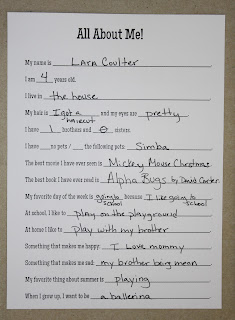 All About Me!
My name is Lara Coulter
I am 4 years old.
I live in the house
My hair is I got a haircut and my eyes are pretty
I have 1 brothers and 0 sisters.
I have no pets / the following pets: Simba
The best movie I have ever seen is Mickey Mouse Christmas
The best book I have ever read is Alpha Bugs by David Carter
My favorite day of the week is going to school because I like going to school
At school, I like to play on the playground
At home I like to play with my brother
Something that makes me happy: I love mommy
Something that makes me sad: my brother being mean
My favorite thing about summer is playing
When I grow up, I want to be a ballerina